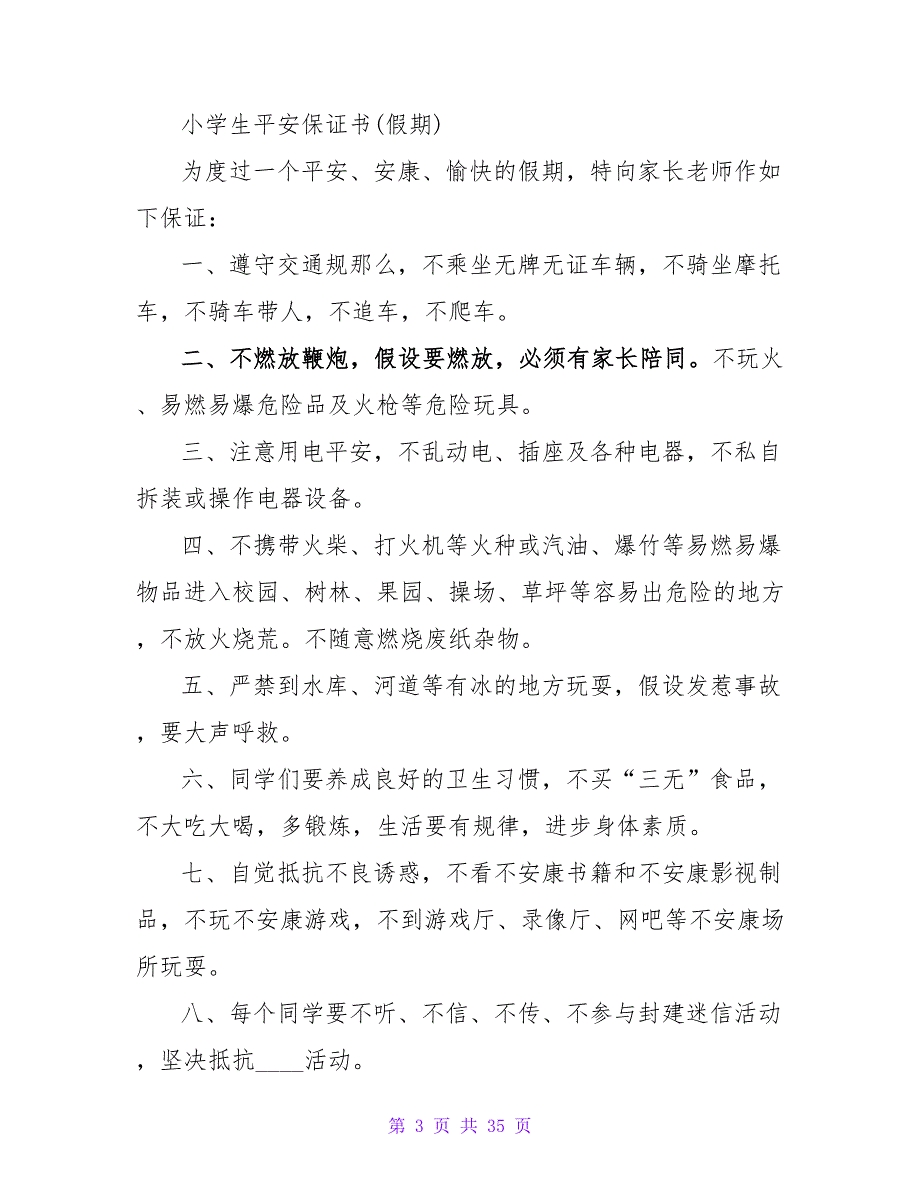 小学生平安保证书(假期)
为度过一个平安、安康、愉快的假期，特向家长老师作如
下保证：
一、遵守交通规那么，不乘坐无牌无证车辆，不骑坐摩托
车，不骑车带人，不追车，不爬车。
二、不燃放鞭炮，假设要燃放，必须有家长陪同。不玩火
、易燃易爆危险品及火枪等危险玩具。
三、注意用电平安，不乱动电、插座及各种电器，不私自
拆装或操作电器设备。
四、不携带火柴、打火机等火种或汽油、爆竹等易燃易爆
物品进入校园、树林、果园、操场、草坪等容易出危险的地方
，不放火烧荒。不随意燃烧废纸杂物。
五、严禁到水库、河道等有冰的地方玩耍，假设发惹事故
，要大声呼救。
六、同学们要养成良好的卫生习惯，不买“三无”食品，
不大吃大喝，多锻炼，生活要有规律，进步身体素质。
七、自觉抵抗不良诱惑，不看不安康书籍和不安康影视制
品，不玩不安康游戏，不到游戏厅、录像厅、网吧等不安康场
所玩耍。
八、每个同学要不听、不信、不传、不参与封建迷信活动
，坚决抵抗____活动。
第 3 页 共 35 页